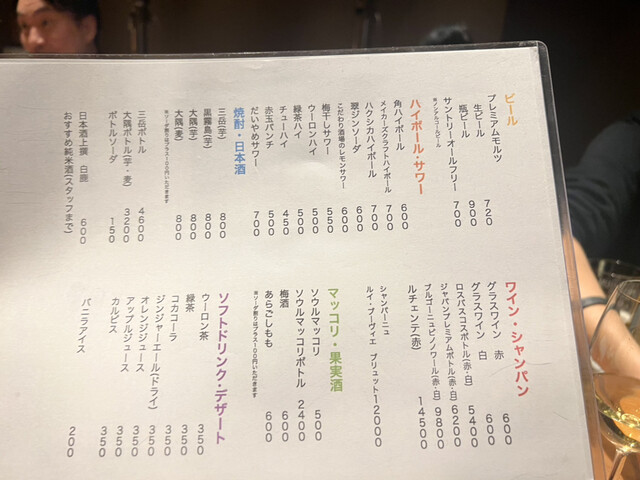 ビール
プレミアムモルツ
生ビール 720
瓶ビール 900
サントリーオールフリー 700
※ノンアルコールビール
ハイボール・サワー
角ハイボール 600
メイカーズクラフトハイボール 700
ハクシカハイボール 700
翠ジンソーダ 600
こだわり酒場のレモンサワー 600
梅干しサワー 550
ウーロンハイ 500
緑茶ハイ 500
チューハイ 450
赤玉パンチ 500
だいやめサワー 700
焼酎・日本酒
三岳(芋) 800
黒霧島(芋) 800
大隅(芋) 800
大隅(麦) 800
※ソーダ割りはプラス100円いただきます
三岳ボトル 4600
大隅ボトル(芋・麦) 3200
ボトルソーダ 150
日本酒上撰 白鹿 600
おすすめ純米酒(スタッフまで)
ワイン・シャンパン
グラスワイン 赤 600
グラスワイン 白 600
ロスパスコスボトル(赤・白) 5400
ジャパンプレミアムボトル(赤・白) 6200
ブルゴーニュピノワール(赤・白) 9800
ルチェンテ(赤) 14500
シャンパーニュ
ルイ・ブーヴィエ ブリュット 12000
マッコリ・果実酒
ソウルマッコリ 500
ソウルマッコリボトル 2400
梅酒 600
あらごしもも 600
※ソーダ割りはプラス100円いただきます
ソフトドリンク・デザート
ウーロン茶 350
緑茶 350
コカコーラ 350
ジンジャーエール(ドライ) 350
オレンジジュース 350
アップルジュース 350
カルピス 350
バニラアイス 200